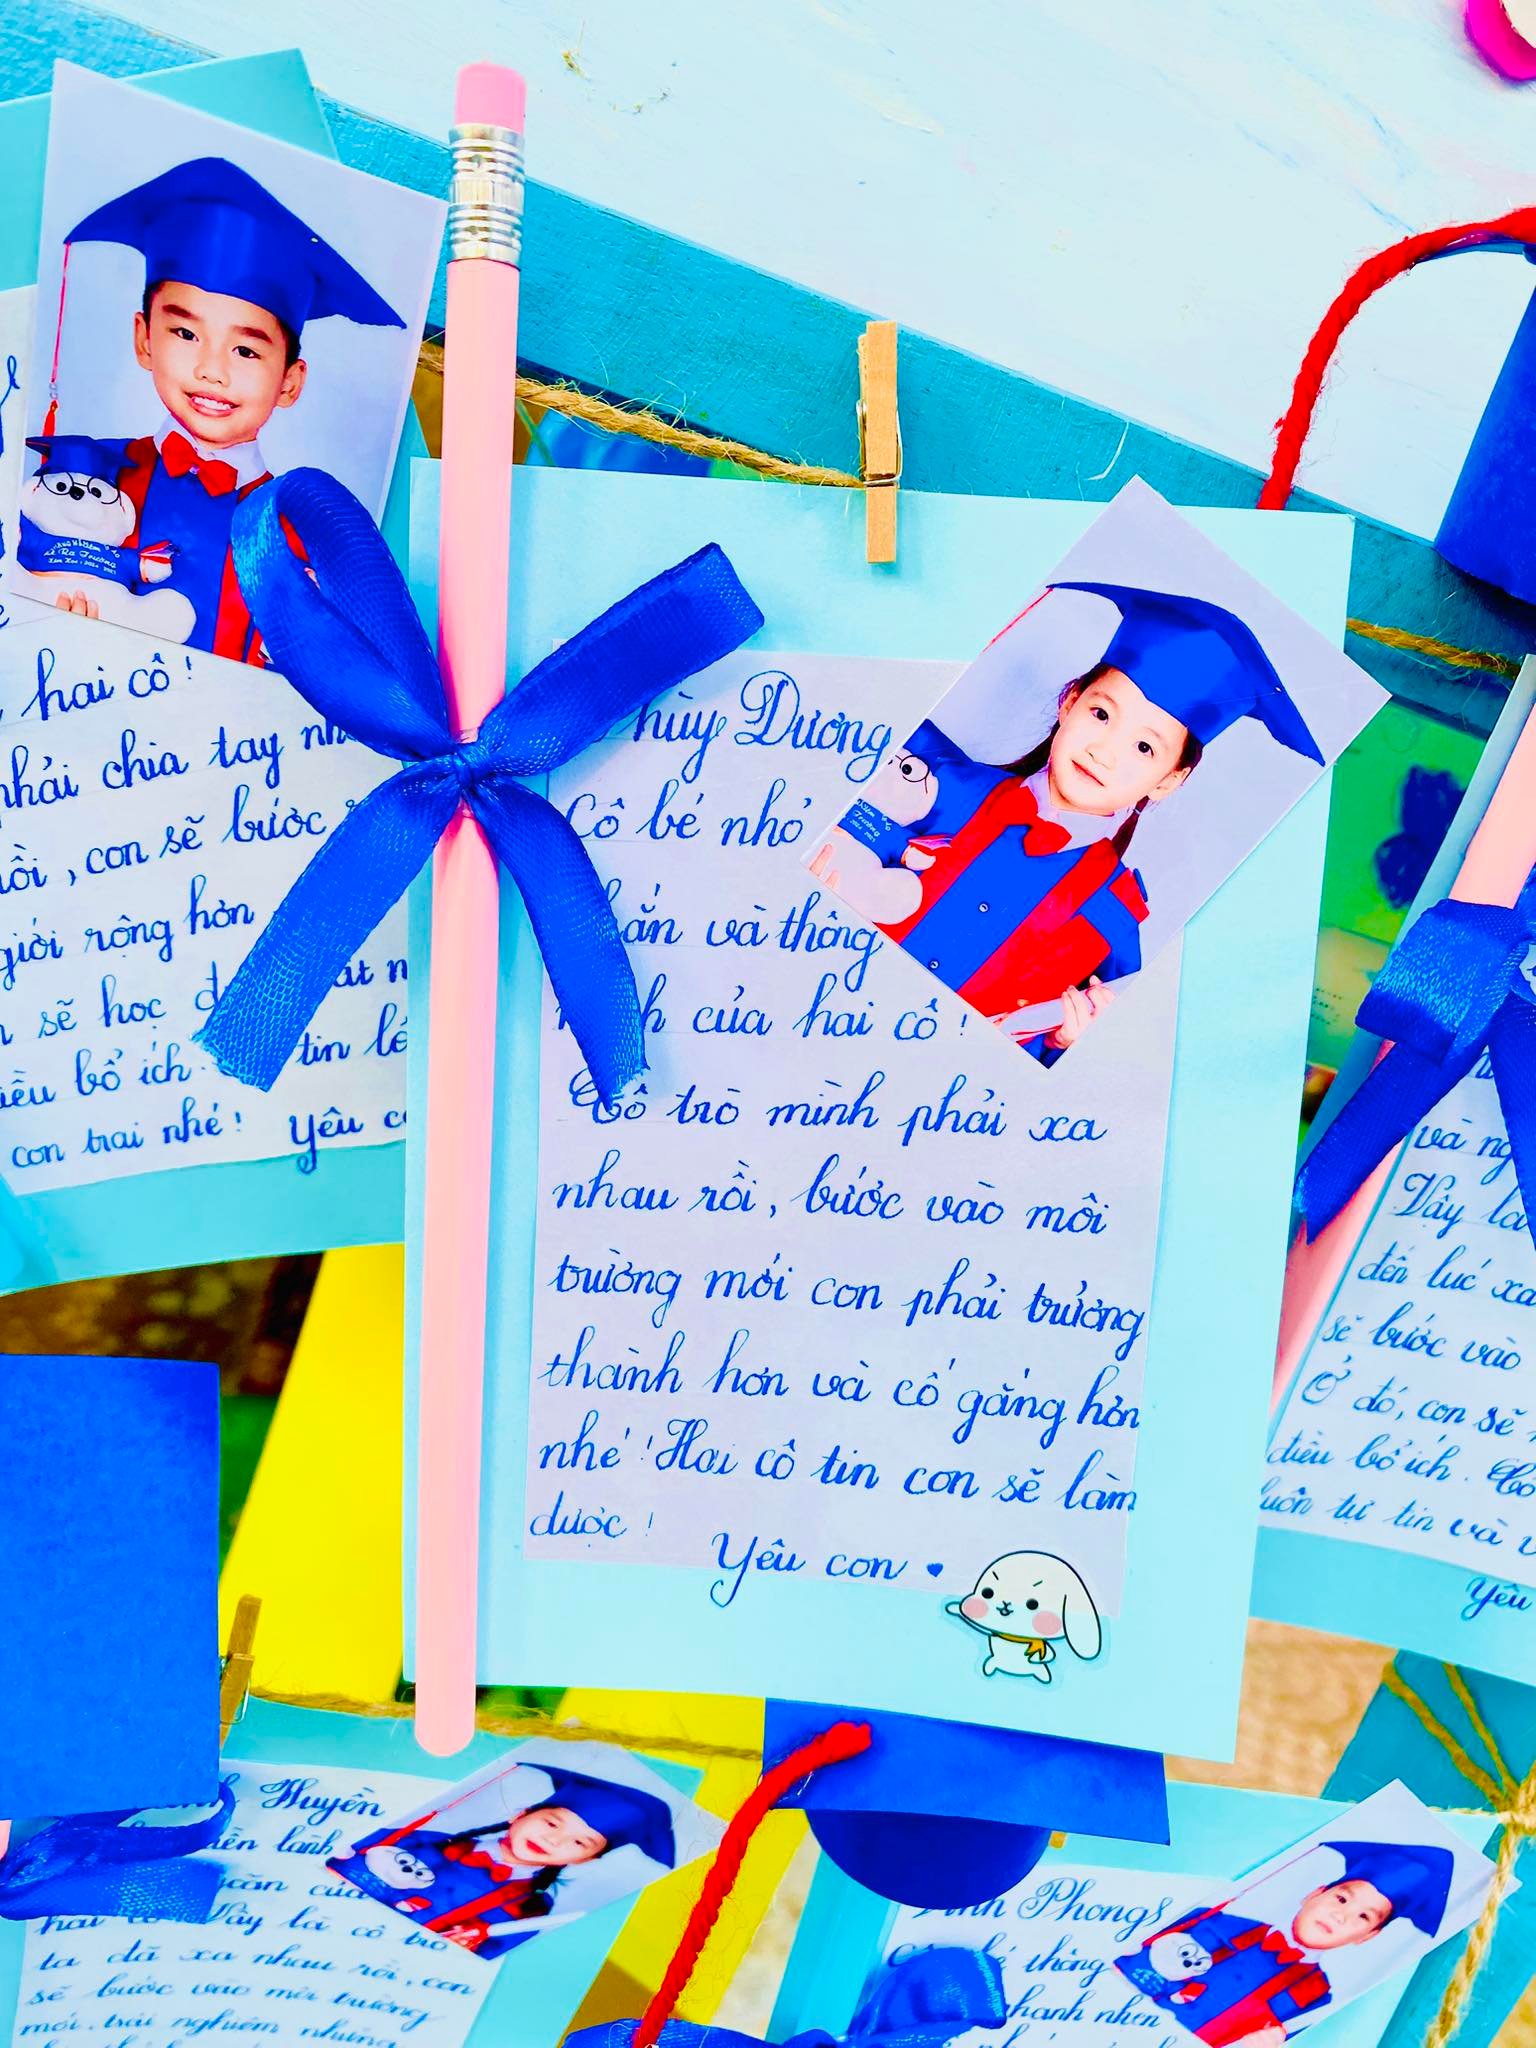 hai cô!
phải chia tay
rồi, con sẽ bước
giới rộng hơn
sẽ học
bổ ích. tin
con trai nhé! Yêu
Lễ Ra Trường
Thùy Dương
Cô bé nhỏ
nhắn và thông
minh của hai cô!
Cô trò mình phải xa
nhau rồi, bước vào môi
trường mới con phải trưởng
thành hơn và cố gắng hơn
nhé! Hai cô tin con sẽ làm
được!
Yêu con
và
Vậy là
đến lúc xa
sẽ bước vào
Ở đó, con sẽ
điều bổ ích. Cô
luôn tự tin và
Yêu
Huyền
hiền lành
ngoãn của
hai cô! Vậy là cô trò
ta đã xa nhau rồi, con
sẽ bước vào môi trường
mới, trải nghiệm những
Phong
thông
nhanh nhẹn